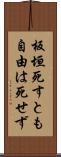 板垣死すとも
自由は死せず